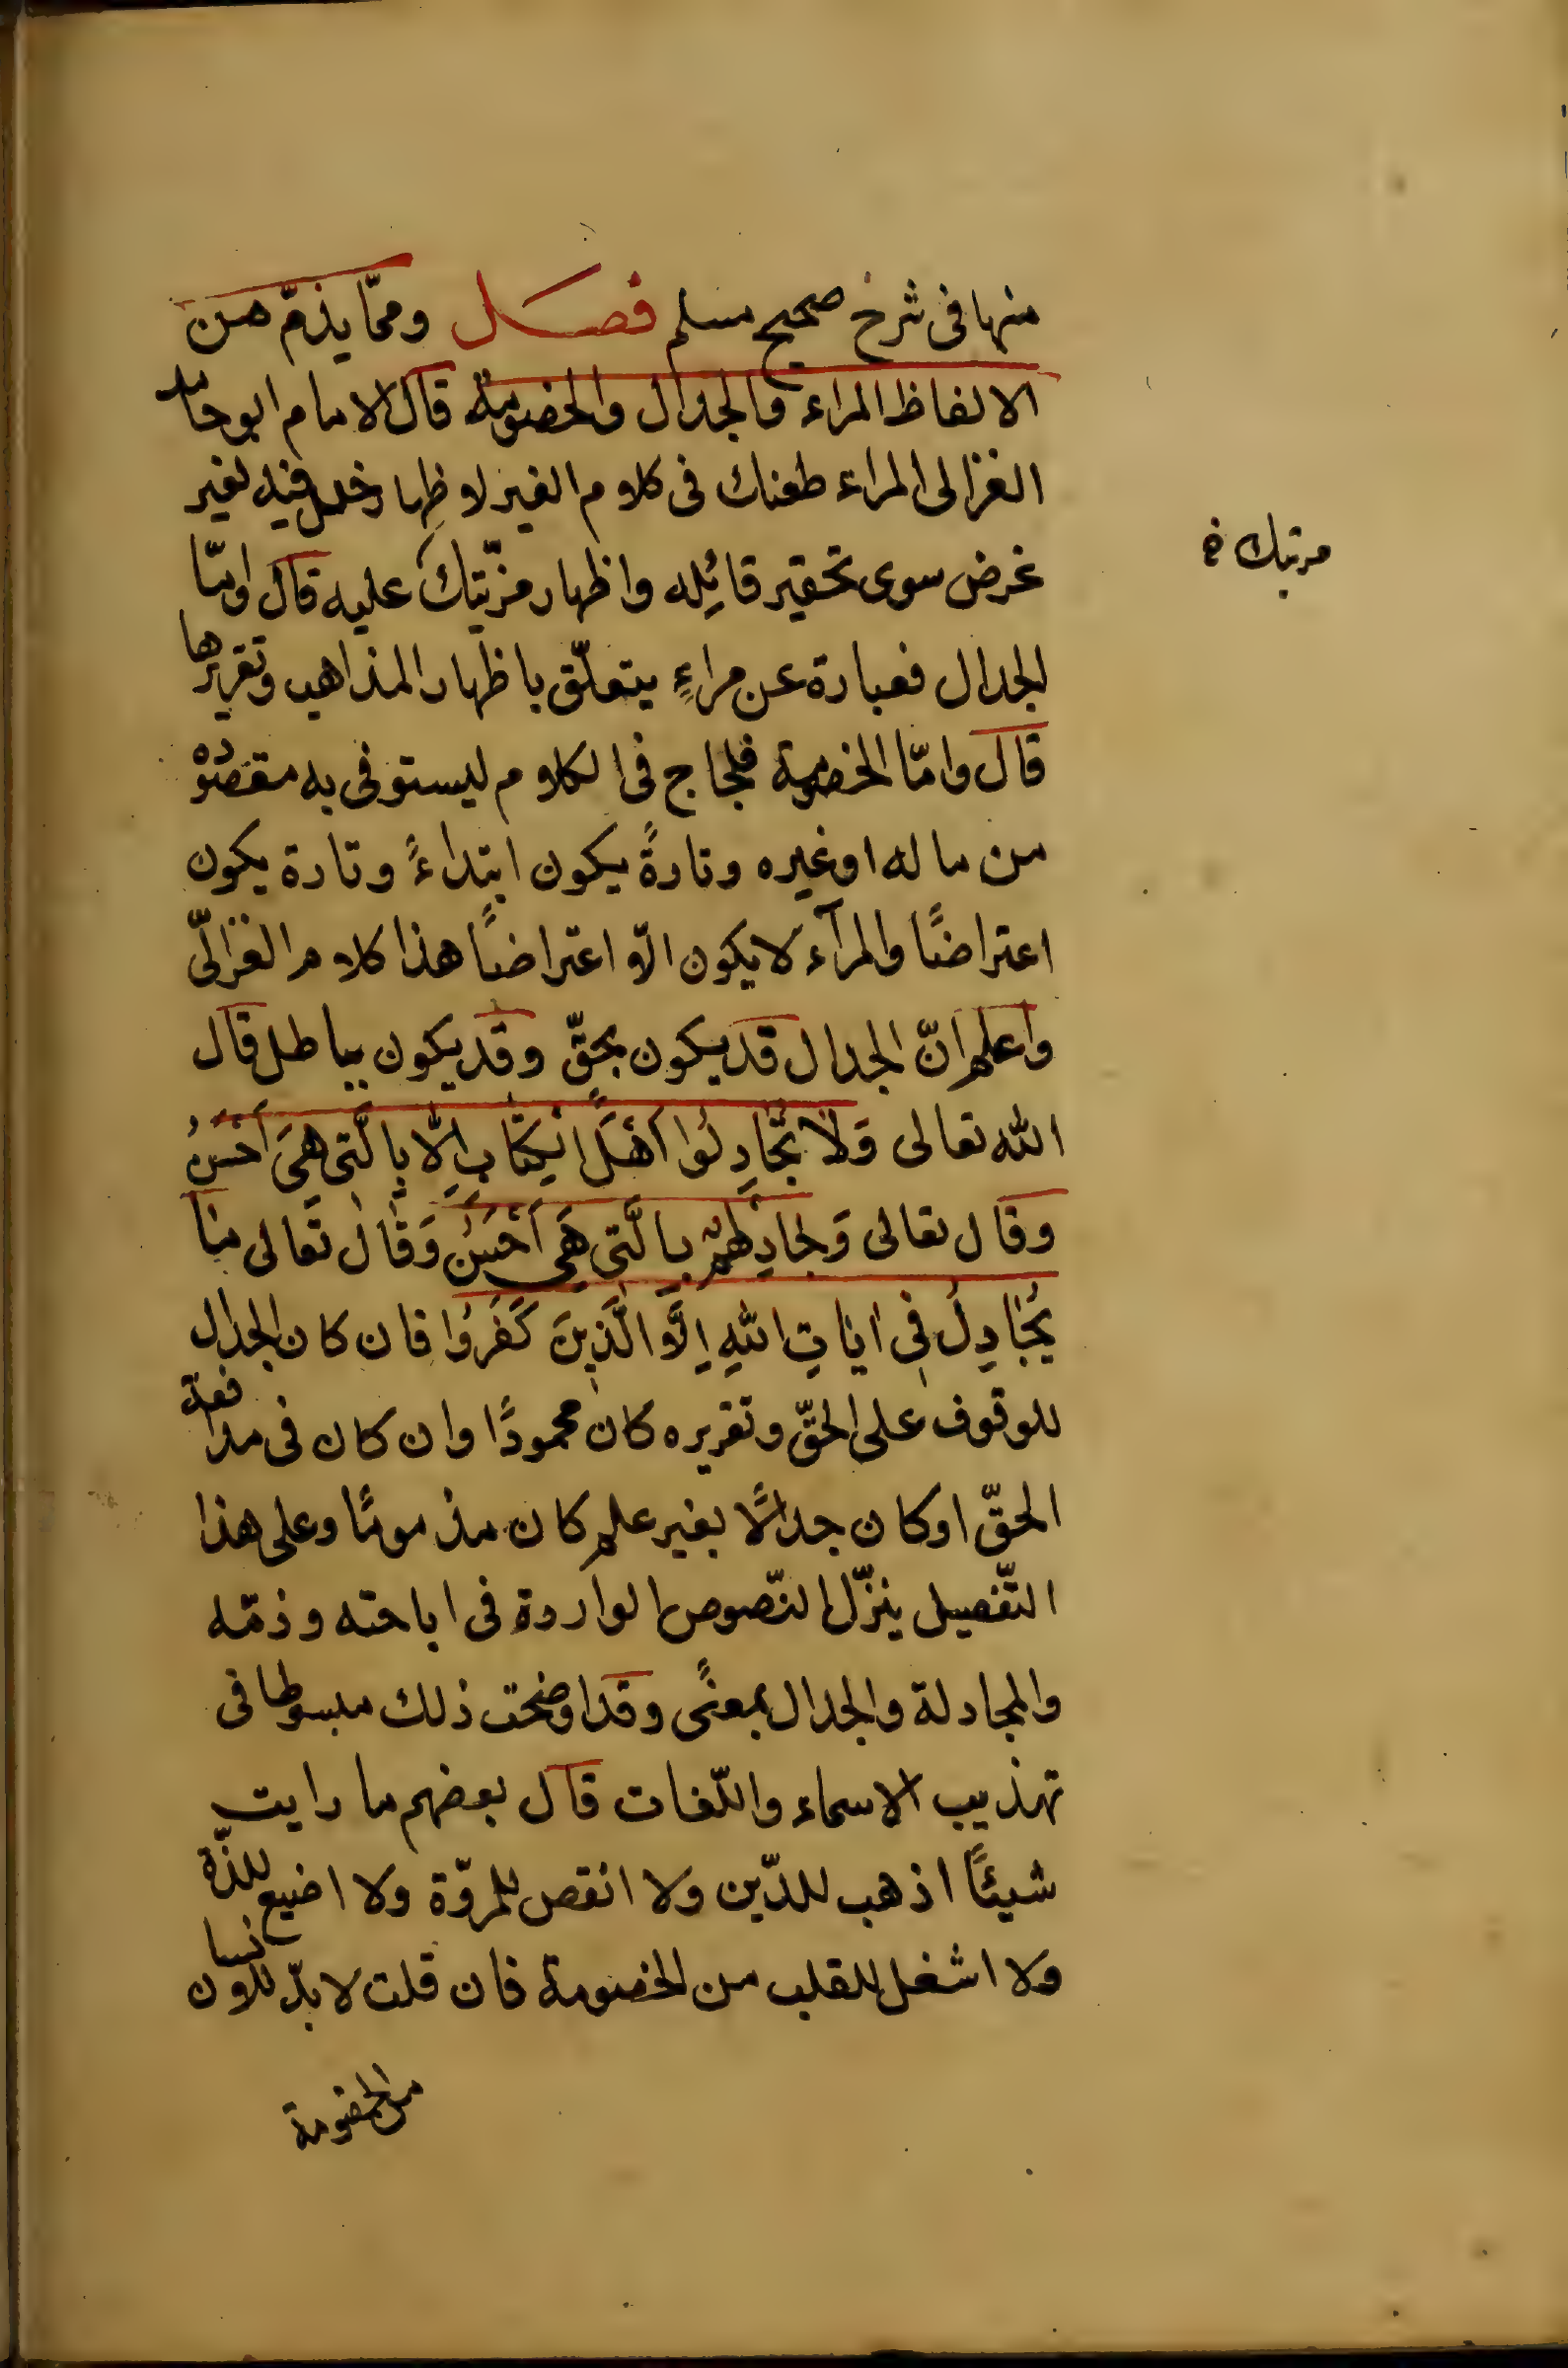 منها فى شرح صحيح مسلم فصل وممّا يذمّ من
الالفاظ المراء والجدال والخصومة قال الامام ابو حامد
الغزالى المراء طعنك فى كلام الغير لاظهار خلل فيه لغير
غرض سوى تحقير قائله واظهار مزيّتك عليه قال وامّا
الجدال فعبارة عن مراءٍ يتعلّق باظهار المذاهب وتقريرها
قال وامّا الخصومة فلجاج فى الكلام ليستوفى به مقصوده
من ماله او غيره وتارةً يكون ابتداءً وتارة يكون
اعتراضًا والمرآء لا يكون الّا اعتراضًا هذا كلام الغزالّى
واعلم انّ الجدال قد يكون بحقّ وقد يكون بباطل قال
الله تعالى وَلَا تُجَادِلُوا اَهْلَ الْكِتَابِ اِلَّا بِالَّتِى هِيَ اَحْسَنُ
وقال تعالى وَجَادِلْهُمْ بِالَّتِى هِيَ اَحْسَنُ وَقَالَ تَعالى مَا
يُجَادِلُ فِى ايَاتِ اللهِ اِلَّا الَّذِينَ كَفَرُوا فان كان الجدال
للوقوف على الحقّ وتقريره كان محمودًا وان كان فى مدافعة
الحقّ او كان جدالًا بغير علم كان مذمومًا وعلى هذا
التّفصيل ينزّل النّصوص الواردة فى اباحته وذمّه
والمجادلة والجدال بمعنًى وقد اوضحت ذلك مبسوطا فى
تهذيب الاسماء واللّغات قال بعضهم ما رايت
شيئًا اذهب للدّين ولا انقص للمروّة ولا اضيع للذّة
ولا اشغل للقلب من الخصومة فان قلت لا بدّ للانسان
من الخصومة
مرتبك